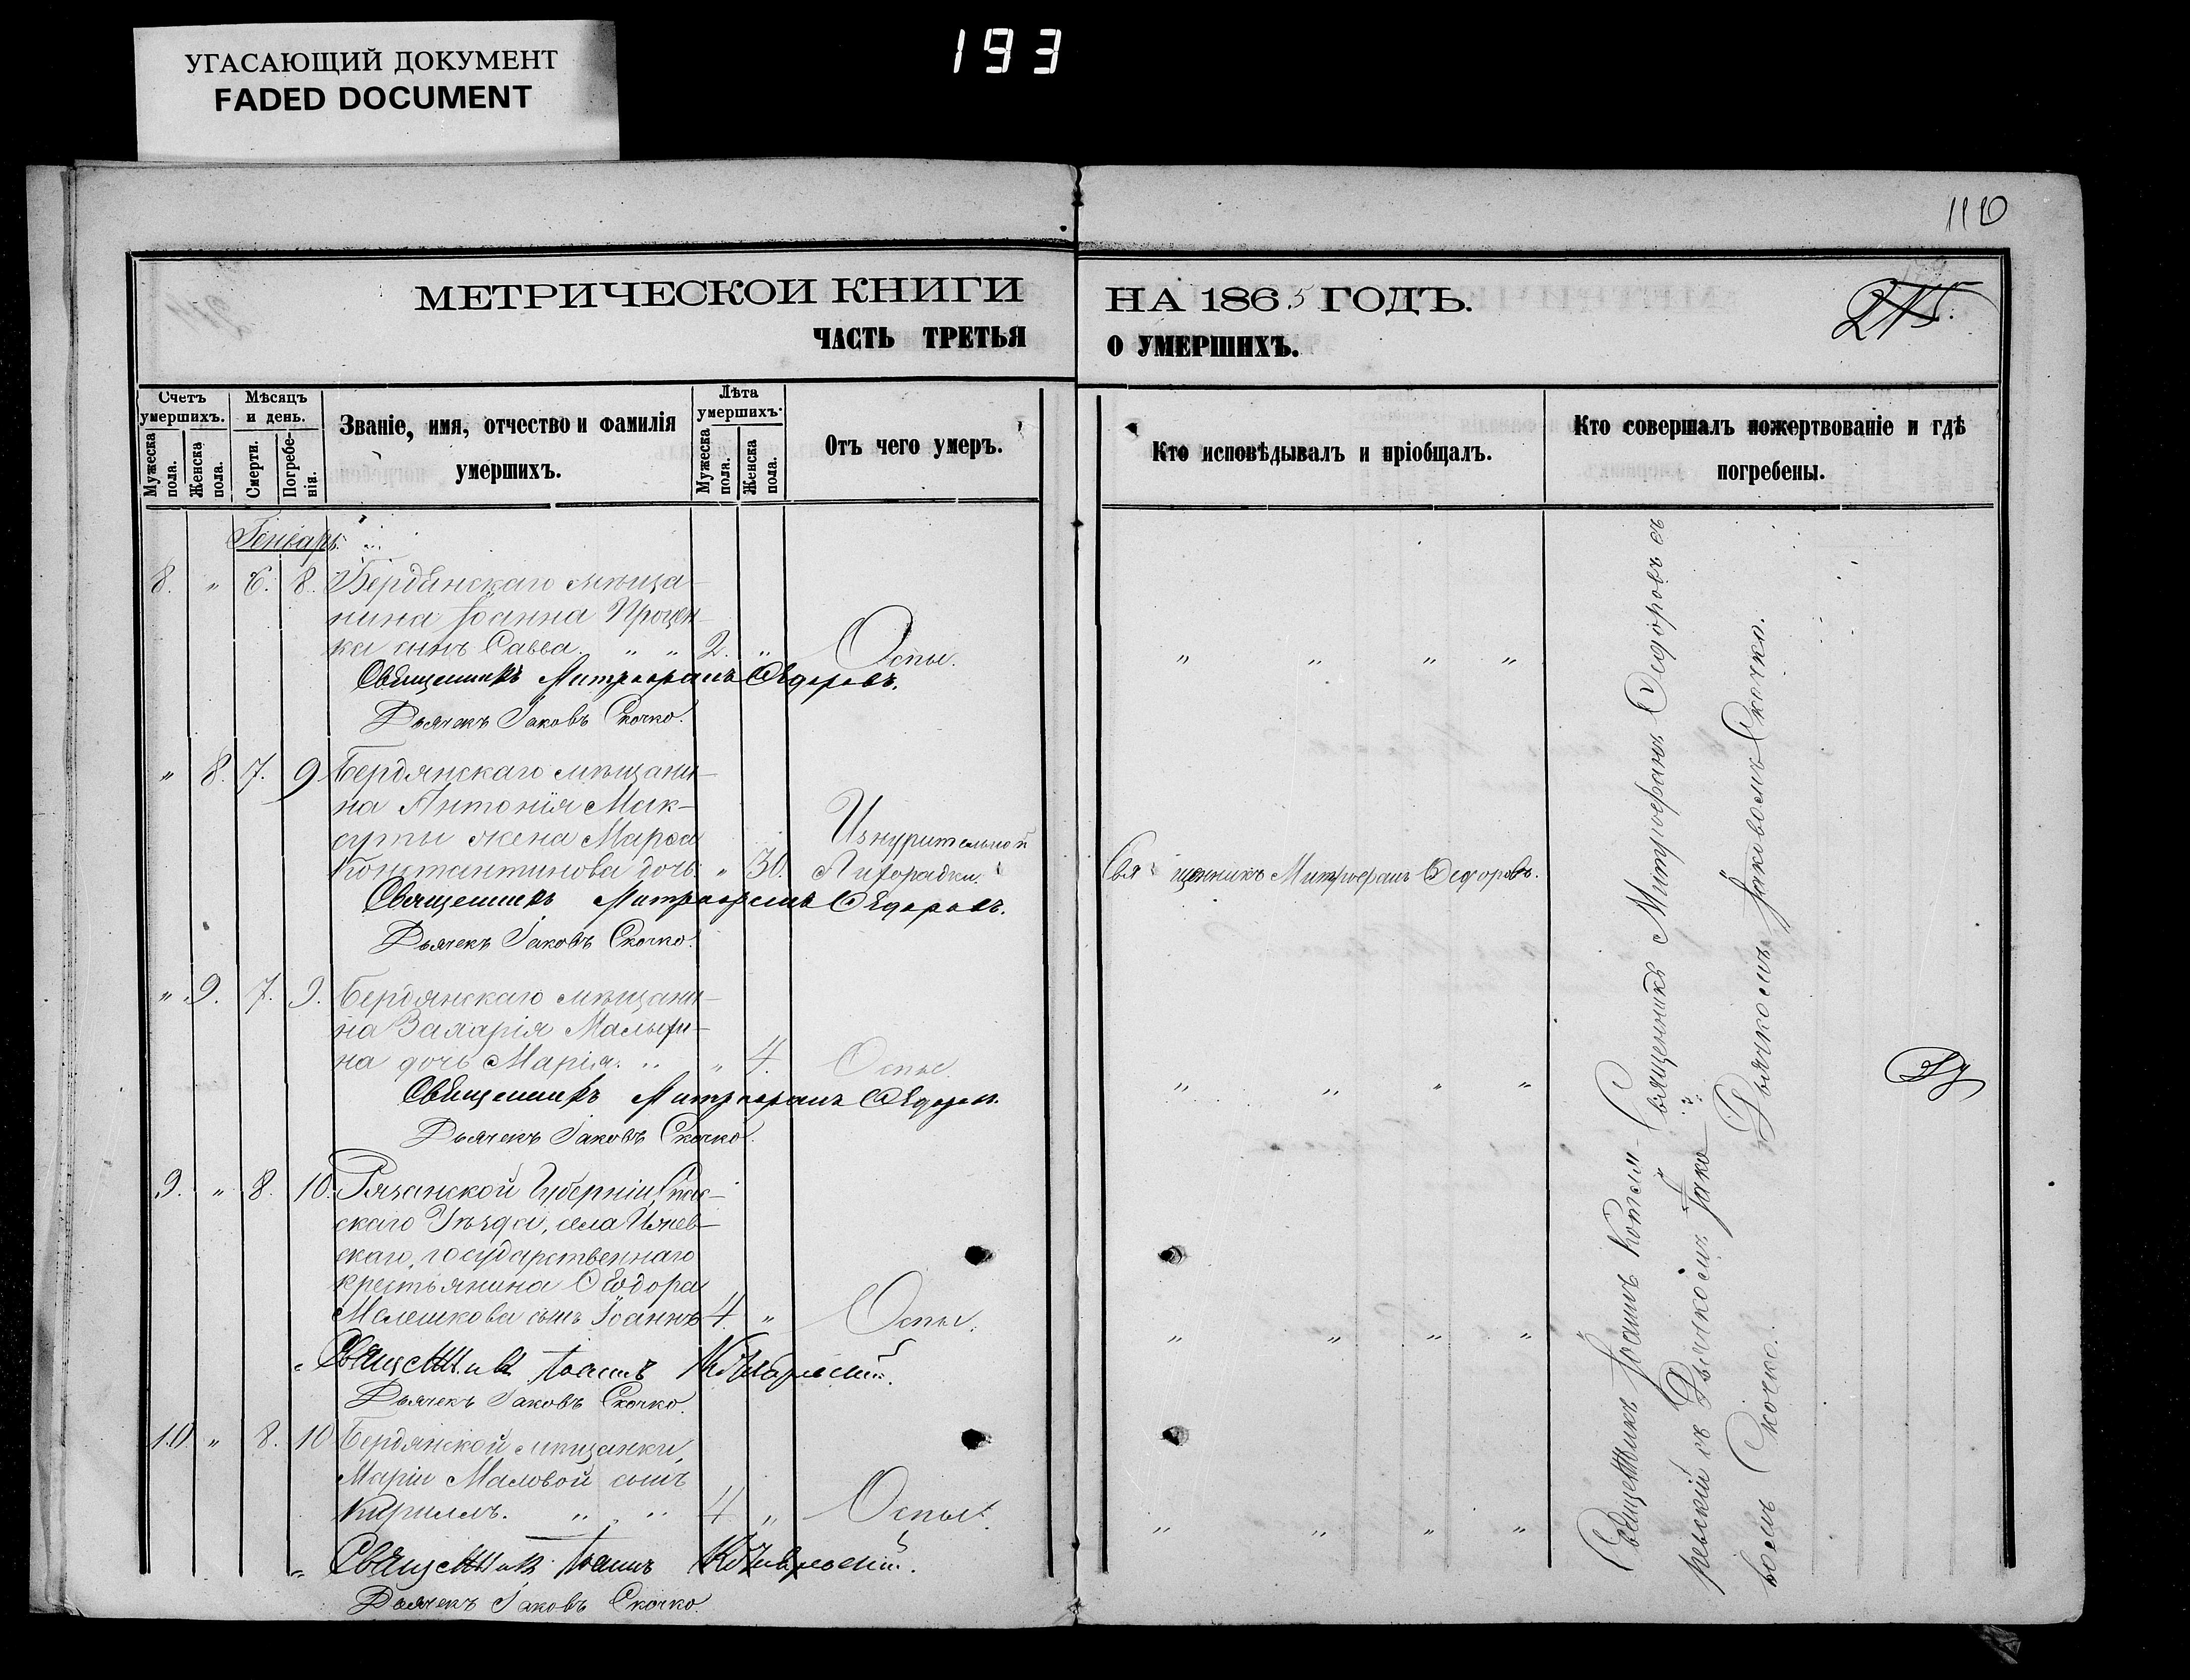 193
УГАСАЮЩИЙ ДОКУМЕНТ
FADED DOCUMENT
110
МЕТРИЧЕСКОЙ КНИГИ
НА 1865 ГОДЪ.
215.
ЧАСТЬ ТРЕТЬЯ
О УМЕРШИХЪ.
Счетъ умершихъ.
Мужеска пола.
Женска пола.
Мѣсяцъ и день.
Смерти.
Погребе-
нія.
Званіе, имя, отчество и фамилія
умершихъ.
Лѣта умершихъ.
Мужеска пола.
Женска пола.
Отъ чего умеръ.
Кто исповѣдывалъ и пріобщалъ.
Кто совершалъ пожертвованіе и гдѣ
погребены.
Генварь.
8. " 6. 8. Бердянскаго мѣща-
нина Іоанна Процен-
ка сынъ Савва. " " 2. " Оспы. " " " "
Священникъ Митрофанъ Ѳедоровъ.
Дьячекъ Іаковъ Скочко.
" 8. 7. 9 Бердянскаго мѣщани-
на Антонія Мак-
суты жена Марѳа Изнурительной
Константинова дочь " 30. Лихорадки. Священникъ Митрофанъ Ѳедоровъ.
Священникъ Митрофанъ Ѳедоровъ.
Дьячекъ Іаковъ Скочко.
" 9. 7. 9. Бердянскаго мѣщани-
на Малыги-
на дочь Марія. " " 4. Оспы. " " " "
Священникъ Митрофанъ Ѳедоровъ.
Дьячекъ Іаковъ Скочко.
9. " 8. 10. Рязанской Губерніи, Спас-
скаго Уѣзда, села Ижев-
скаго, государственнаго
крестьянина Ѳеодора
Малешкова сынъ Іоаннъ 4 " Оспы. " " " "
Священникъ Іоаннъ
Дьячекъ Іаковъ Скочко.
10. " 8. 10 Бердянской мѣщанки,
Маріи Маловой сынъ
Кириллъ. " " 4 " Оспы. " " " "
Священникъ Іоаннъ
Дьячекъ Іаковъ Скочко.
Священникъ Митрофанъ Ѳедоровъ съ
Дьячкомъ Іаковомъ Скочко.
Священникъ Іоаннъ
ревскій съ Дьячкомъ Іако-
вомъ Скочко.